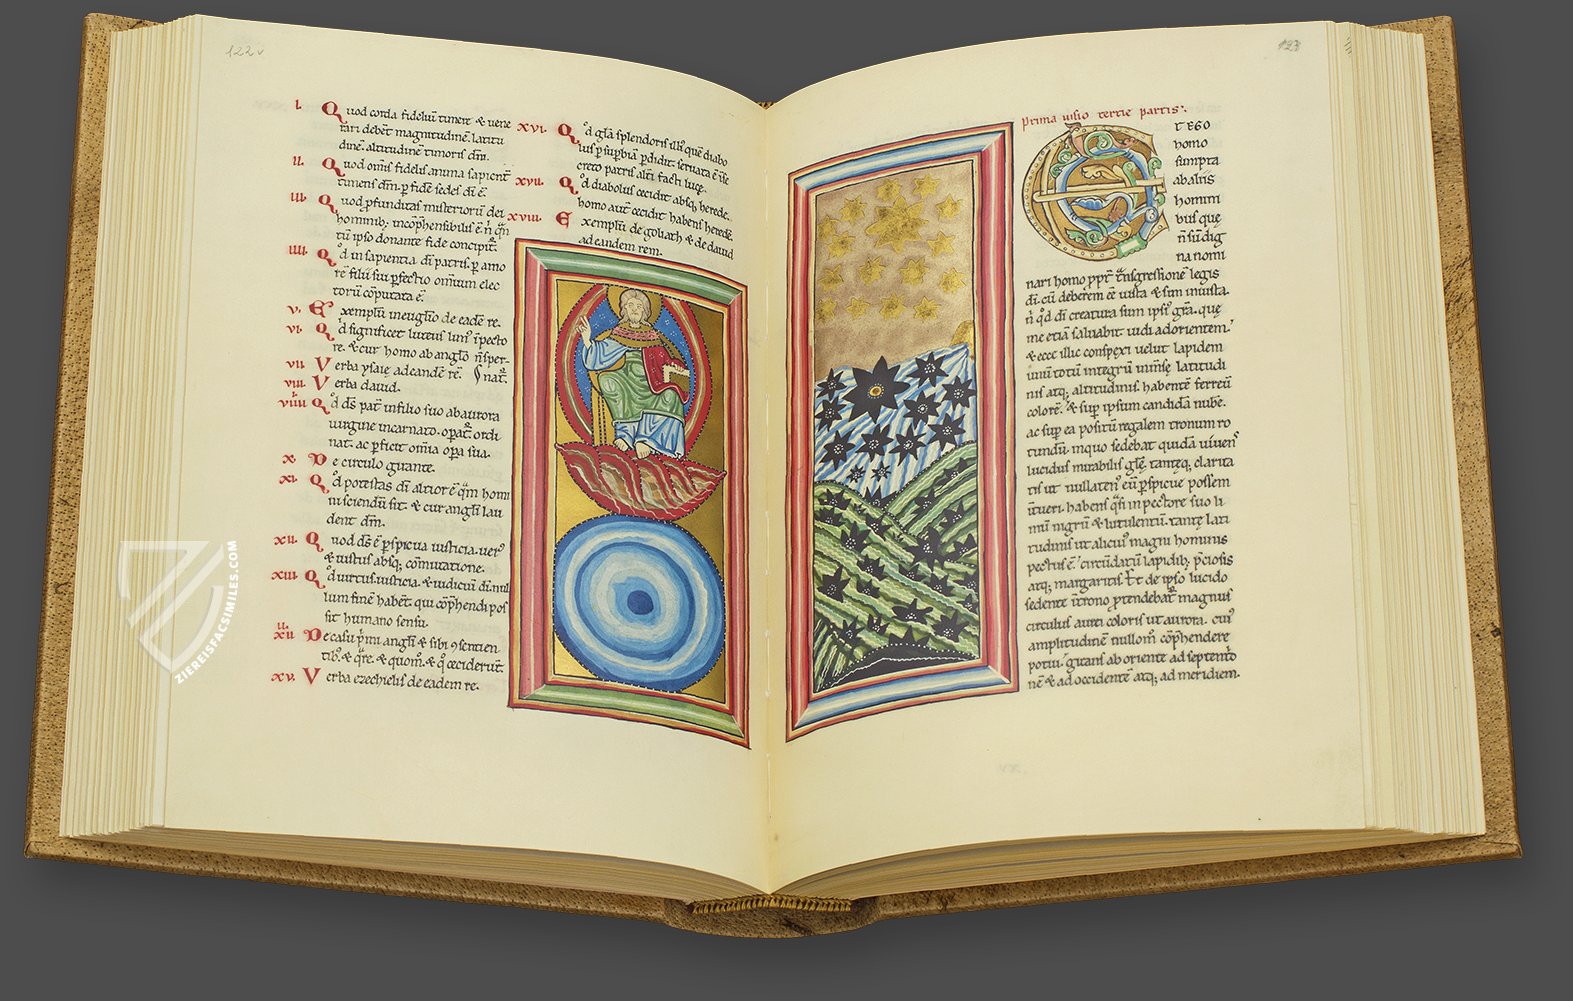 122v
I. Quod corda fideliũ timere & vene
rari debẽt magnitudinẽ. latitu
dinẽ. altitudinẽ timoris dm̃.
II. Quod om̃is fidelis anima sapient̃
timens dm̃. p̱ fidẽ sedes dĩ ẽ.
III. Quod p̱funditas misteriorũ dei
hominib; incõp̱hensibilis ẽ. ñ
tũ ipso donante fide concipit̃.
IIII. Qd̃ in sapientia dĩ patris. p̱ amo
rẽ filii sui p̱fectio omnium elec
torũ cõputata ẽ.
V. Exemplũ in euglĩo de eadẽ re.
VI. Qd̃ significet luteus limꝰ ĩ pecto
re. & cur homo ab anglõ ñ sper-
VII. Verba ysaię ad eandẽ rẽ. nat̃.
VIII. Verba david.
VIIII. Qd̃ ds̃ pat̃ in filio suo ab aurora
virgine incarnato. opat̃. ordi
nat. ac p̱ficit omnia opa sua.
X. De circulo girante.
XI. Qd̃ potestas dĩ altior ẽ homi
ni sciendũ sit. & cur angli lau
dent dm̃.
XII. Quod ds̃ ẽ p̱spicua iusticia. verꝰ
& iustus absq; cõmutatione.
XIII. Qd̃ virtus. iusticia. & iudiciũ dĩ. nul
lum finẽ habẽt qui cõp̱hendi pos
sit humano sensu.
De casu p̃mi angli & sibi ꝯsentien
tibꝰ. & q̃re. & quom̃. & q̊ ceciderũt.
XV. Verba ezechielis de eadem re.
XVI. Qd̃ glã splendoris illiꝰ quẽ diabo
lus p̱ sup̱biam p̱didit. servata ẽ
creto patris alti facti lucę.
XVII. Qd̃ diabolus cecidit absq; herede.
homo autẽ cecidit habens heredẽ.
XVIII. Exemplũ de goliath & de david
ad eandem rem.
123
Prima visio tercie partis:
ET EGO
homo
sumpta
ab aliis
homini
bus quę
ñ sũ dig
na nomi
nari homo ppt̃ t̃nsgressionẽ legis
dĩ. cũ deberem ẽe iusta & sim iniusta.
ñ qd̃ dĩ creatura sum ipsiꝰ grã. quę
me etiã salvabit. vidi ad orientem.
& ecce illic conspexi velut lapidem
unũ totũ integrũ inm̃se latitudi
nis atq; altitudinis habentẽ ferreũ
colorẽ. & sup̱ ipsum candidã nubẽ.
ac sup̱ ea positũ regalem tronum ro
tundũ. in quo sedebat quidã vivens
lucidus mirabilis glę. tantęq; clarita
tis ut nullatenꝰ eũ p̱spicue possem
intueri. habens q̃si in pectore suo li
mũ nigrũ & lutulentũ. tantę lati
tudinis ut alicuiꝰ magni hominis
pectus ẽ. circũdatũ lapidib; p̃ciosis
atq; margaritis. Et de ipso lucido
sedente ĩ trono p̱tendebat̃ magnus
circulus aurei coloris ut aurora. cuiꝰ
amplitudinẽ nullom̃ cõp̱hendere
potui. girans ab oriente ad septentrio
nẽ & ad occidentẽ atq; ad meridiem.
ZIEREISFACSIMILES.COM